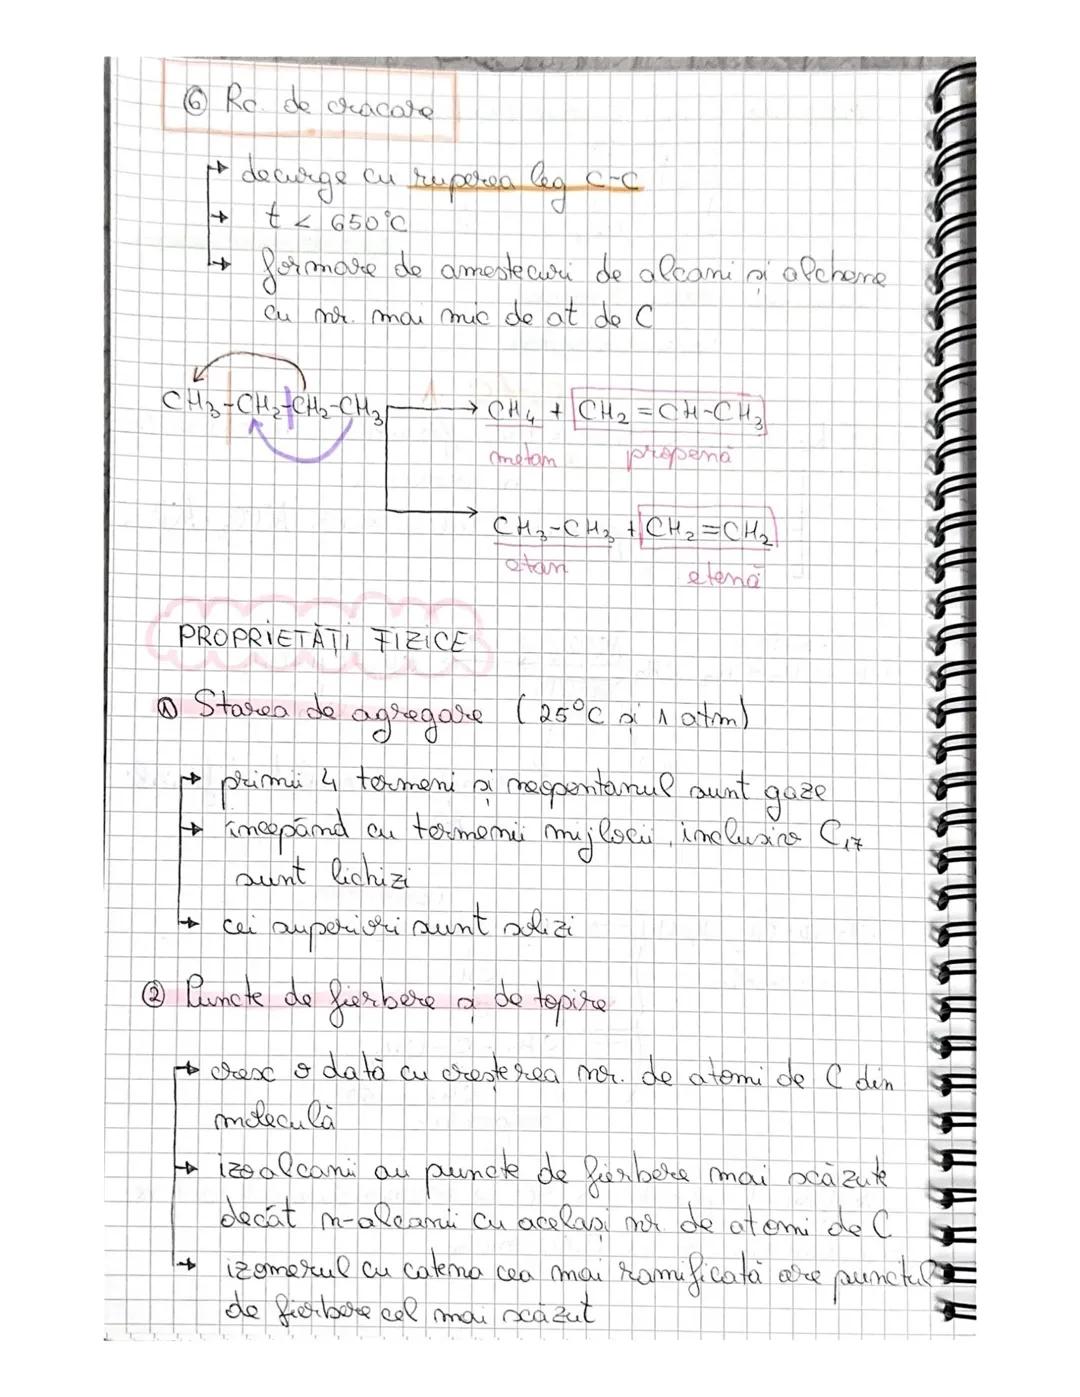 ⑥ Rc. de cracare
→ decurge cu ruperea leg C-C
→ t < 650°C
→ formare de amestecuri de alcani și alchene
cu nr. mai mic de at de C
CH₃-CH₂-CH₂-CH₃ → CH₄ + CH₂=CH-CH₃
metan propenă
→ CH₃-CH₃ + CH₂=CH₂
etan etenă
PROPRIETĂȚI FIZICE
① Starea de agregare (25°C și 1 atm)
→ primii 4 termeni și neopentanul sunt gaze
→ începând cu termenii mijlocii, inclusiv C₁₇
sunt lichizi
→ cei superiori sunt solizi
② Puncte de fierbere și de topire
→ cresc o dată cu creșterea nr. de atomi de C din
moleculă
→ izoalcanii au puncte de fierbere mai scăzute
decât n-alcanii cu același nr. de atomi de C
→ izomerul cu catena cea mai ramificată are punctul
de fierbere cel mai scăzut